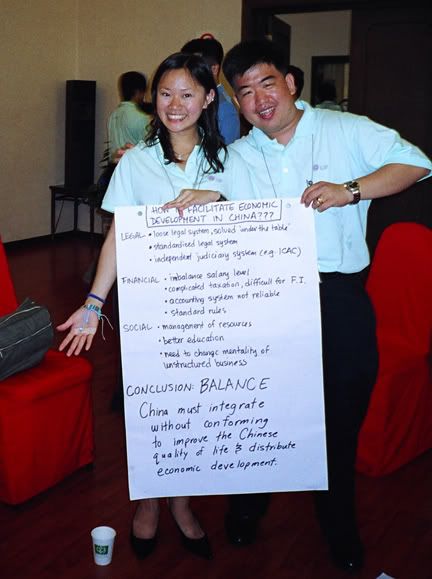 HOW FACILITATE ECONOMIC
DEVELOPMENT IN CHINA???
LEGAL • loose legal system, solved 'under the table'
• standardised legal system
• independent judiciary system (e.g. ICAC)
FINANCIAL • imbalance salary level
• complicated taxation, difficult for F.I.
• accounting system not reliable
• standard rules
SOCIAL • management of resources
• better education
• need to change mentality of
unstructured business
CONCLUSION: BALANCE
China must integrate
without conforming
to improve the Chinese
quality of life & distribute
economic development.